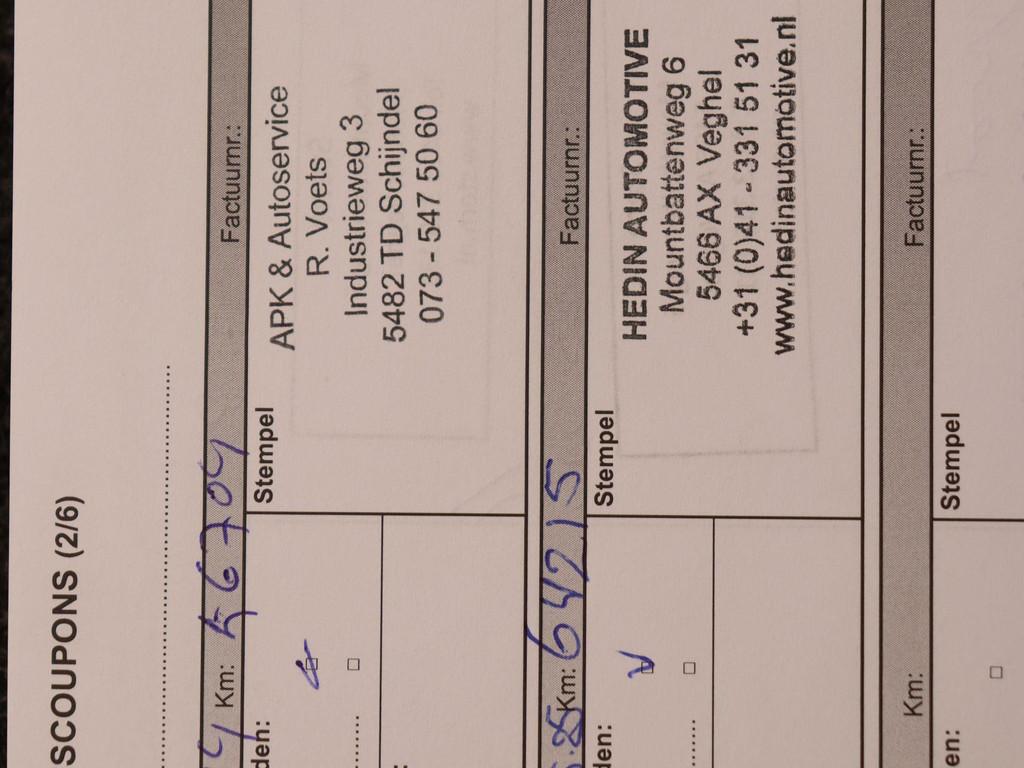 SCOUPONS (2/6)
4 Km: 56704 Factuurnr.:
den:
Stempel
APK & Autoservice
R. Voets
Industrieweg 3
5482 TD Schijndel
073 - 547 50 60
25 Km: 64215 Factuurnr.:
den:
Stempel
HEDIN AUTOMOTIVE
Mountbattenweg 6
5466 AX Veghel
+31 (0)41 - 331 51 31
www.hedinautomotive.nl
Km: Factuurnr.:
en:
Stempel